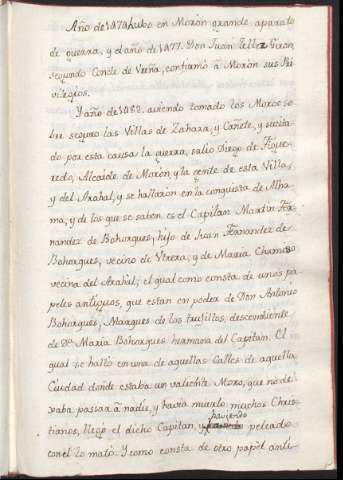 Año de 1474 hubo en Morón grande aparato
de guerra, y el año de 1477. Don Juan Tellez Giron,
segundo Conde de Ureña, confirmò à Morón sus Pri
vilegios.
Y año de 1482. aviendo tomado los Moros so-
bre seguro las Villas de Zahara, y Cañete, y suscita
do por esta causa la guerra, saliò Diego de Figue-
redo, Alcaide de Morón, y la Gente de esta Villa,
y del Arahal, y se hallaron en la conquista de Alha-
ma, y de los que se saben es el Capitan Martin Fer-
nandez de Bohorques, hijo de Juan Fernandez de
Bohorques, vecino de Utrera, y de Maria Chamoso
vecina del Arahal; el qual como consta de unos pa
peles antiguos, que estan en poder de Don Antonio
Bohorques, Marques de los trujillos, descendiente
de Dª Maria Bohorques hermana del Capitan. El
qual se hallò en una de aquellas Calles de aquella
Ciudad donde estaba un valiente Moro, que no de-
xaba passar à nadie, y havia muerto muchos Chris-
tianos, llegò el dicho Capitan, y haviendo peleado
con el lo matò. Y como consta de otro papel anti-